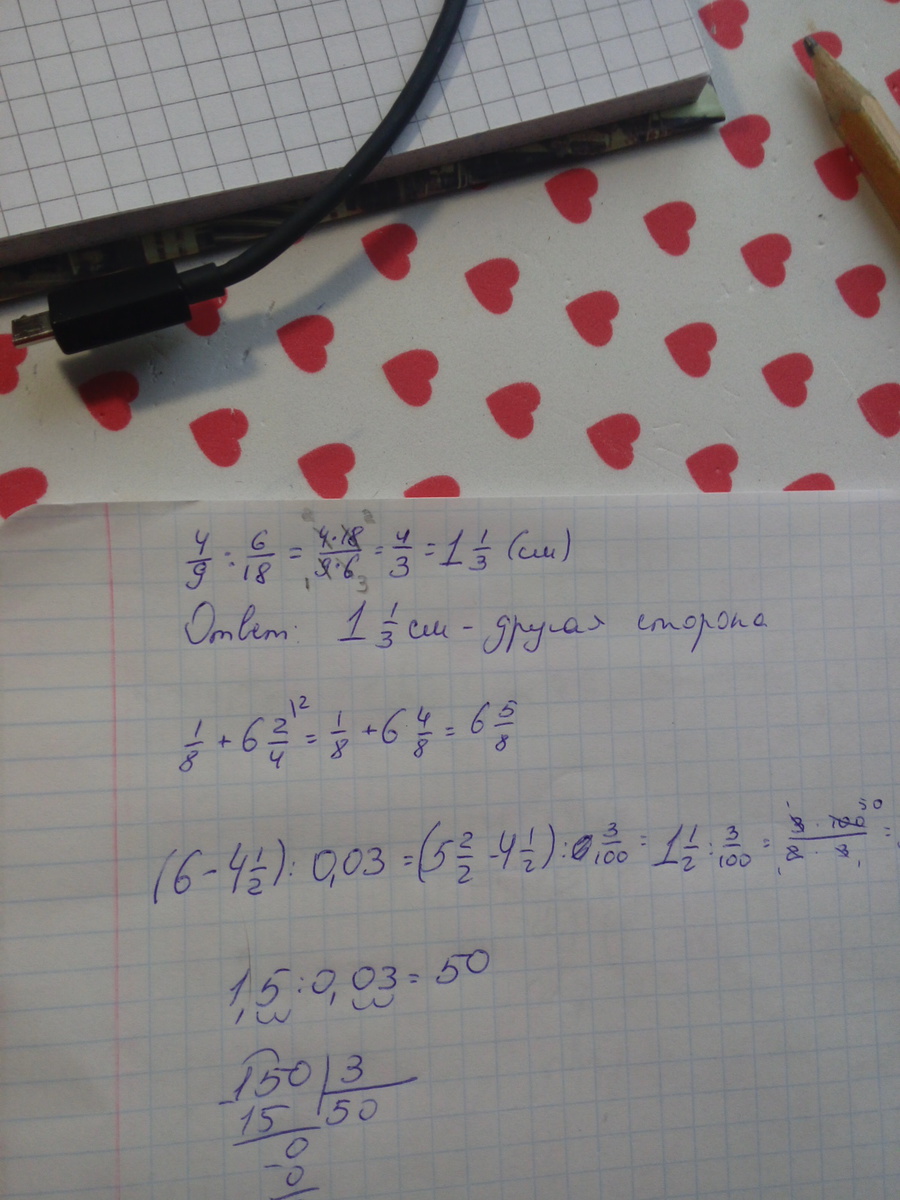 4/9 : 6/18 = 4·18/9·6 = 4/3 = 1 1/3 (см)
Ответ: 1 1/3 см - другая сторона
1/8 + 6 2/4 = 1/8 + 6 4/8 = 6 5/8
(6 - 4 1/2) : 0,03 = (5 2/2 - 4 1/2) : 3/100 = 1 1/2 : 3/100 = 3·100/2·3 =
1,5 : 0,03 = 50
150 | 3
15 | 50
0
0